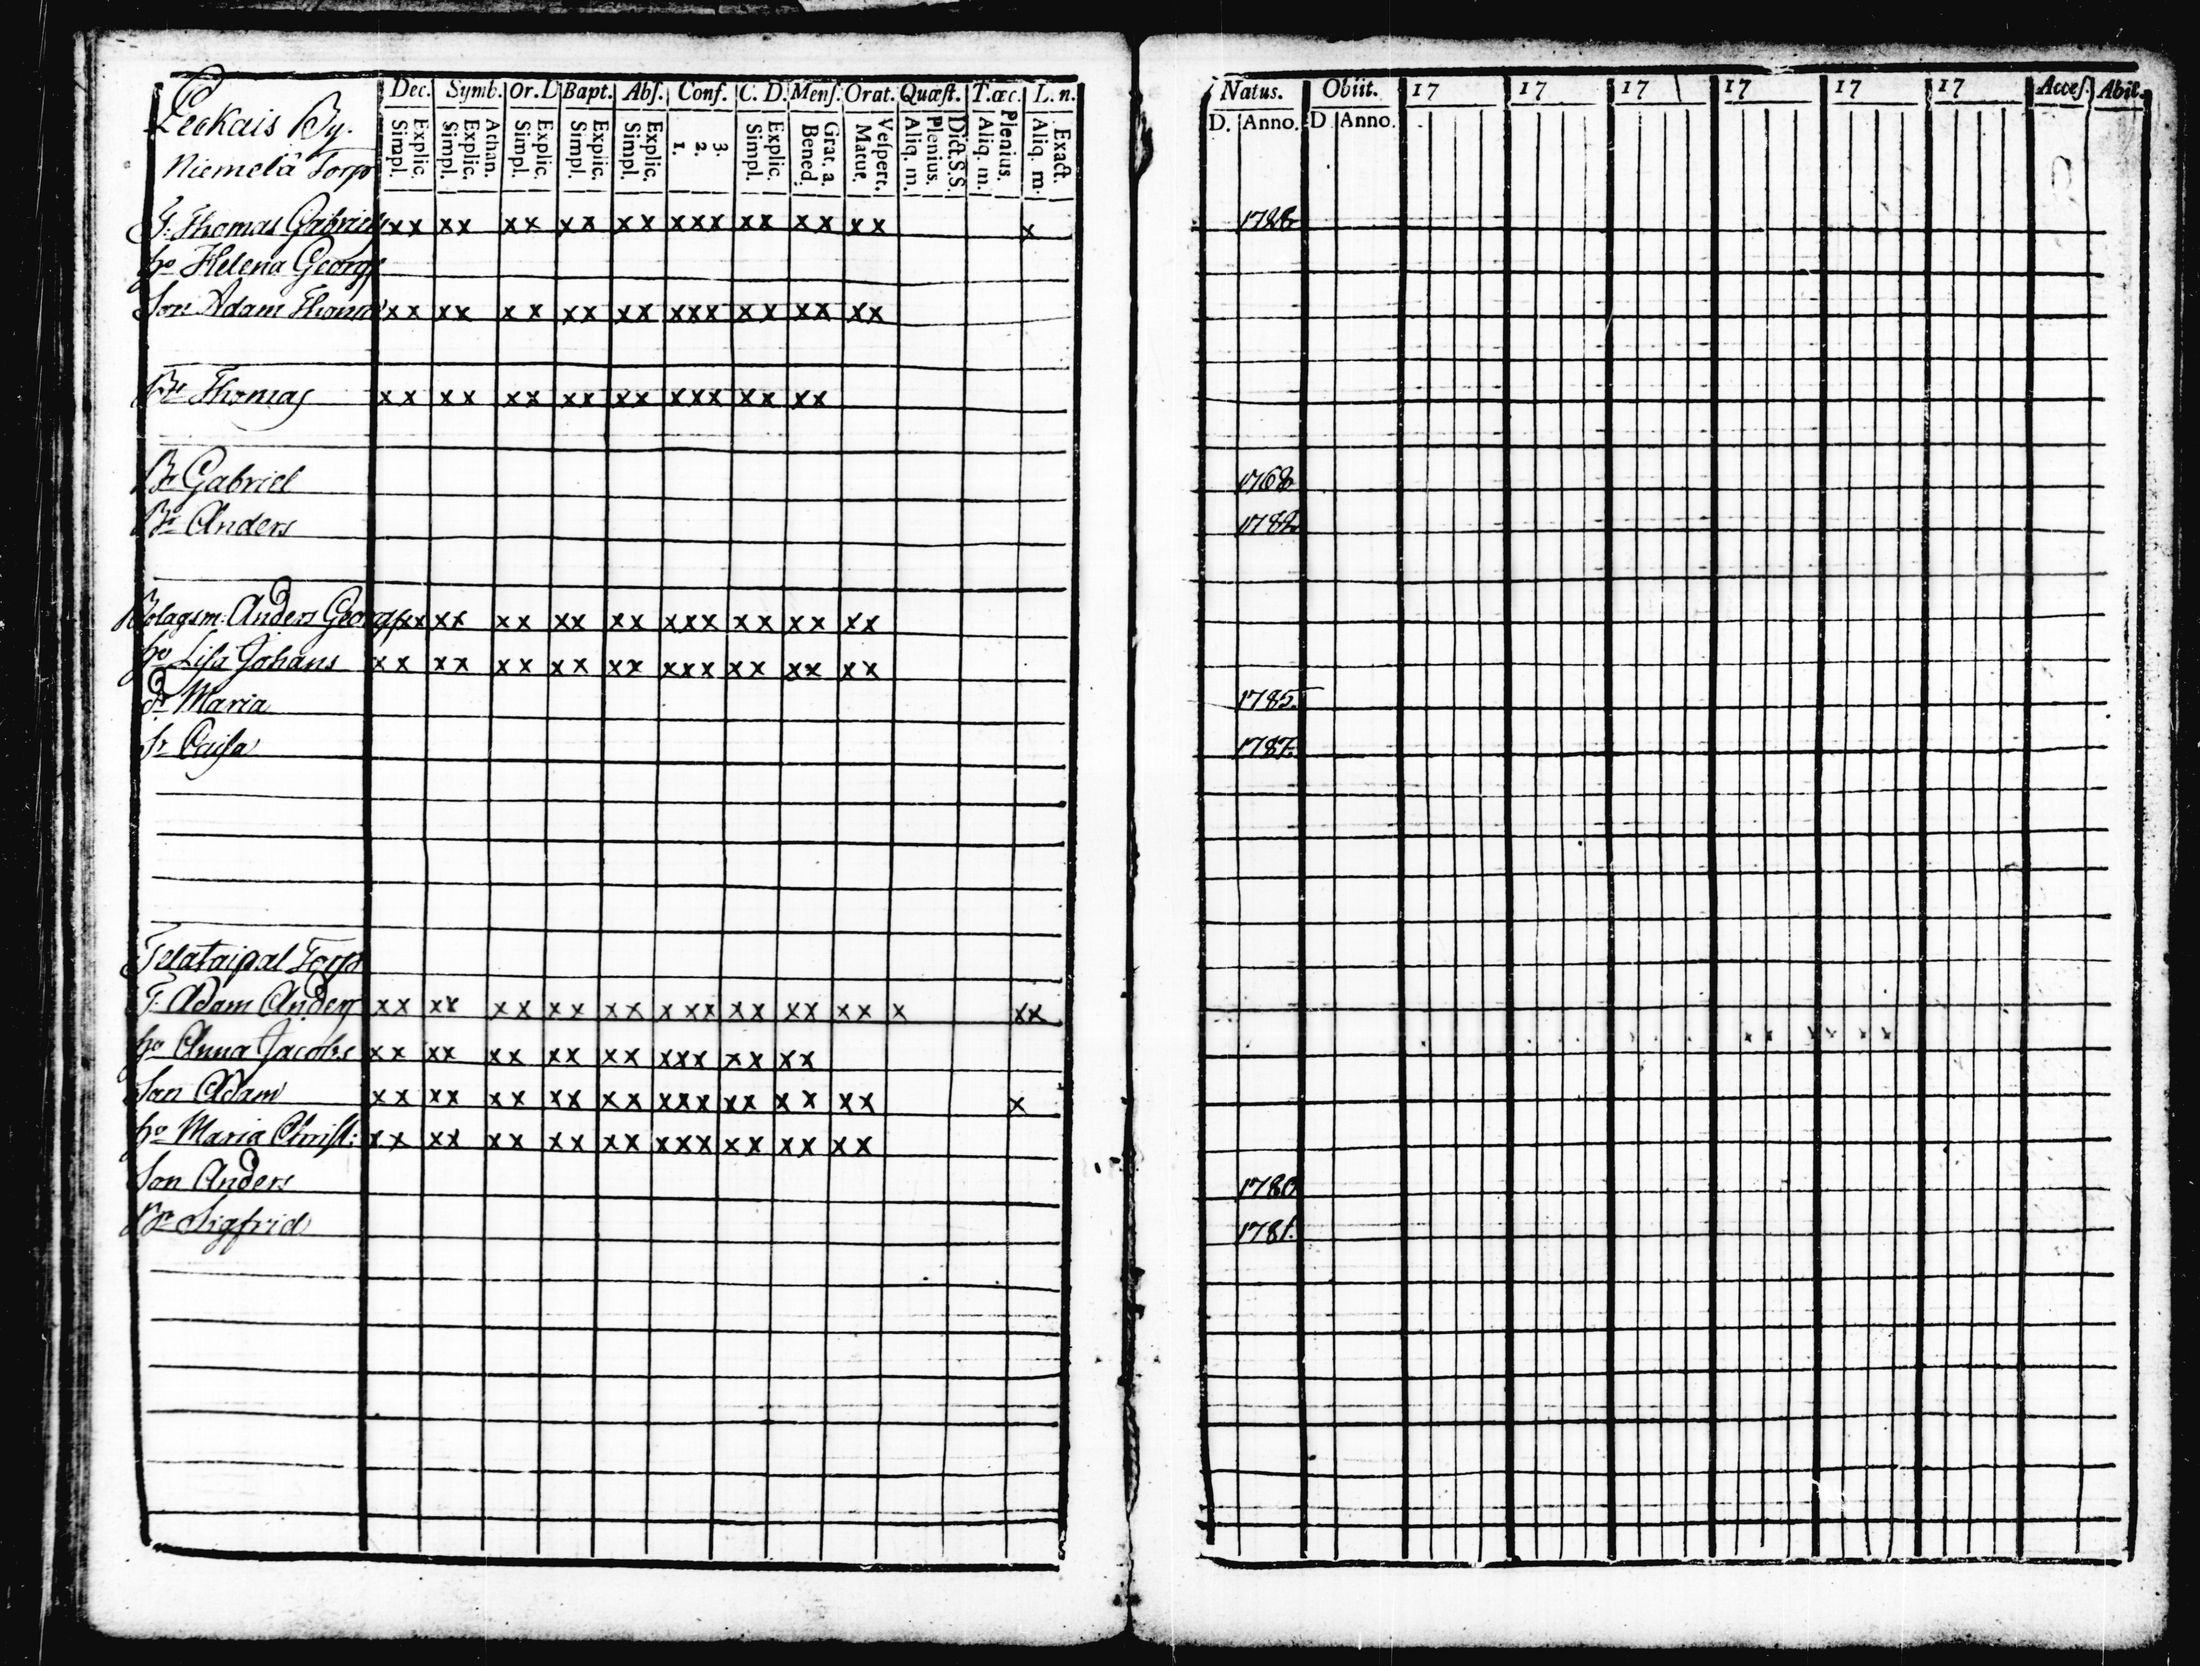 Dec. Symb. Or. D Bapt. Abs. Conf. C. D. Mens. Orat. Quæst. T.œc. L. n.
Simpl. Explic. Simpl. Explic. Athan. Simpl. Explic. Simpl. Explic. Simpl. Explic. 1. 2. 3. Simpl. Explic. Bened. Grat. a. Matut. Vespert. Aliq. m. Plenius. Dict.S.S. Aliq. m. Plenius. Aliq. m. Exact.
Natus. Obiit. 17 17 17 17 17 17 Acces. Abit.
D. Anno. D Anno.
Leokais By.
Niemelä Torp
T. Thomas Gabriels xx xx xx xx xx xxx xx xx xx x
ho Helena Georgs
Son Adam Thomas xx xx xx xx xx xxx xx xx xx
Br Thomas xx xx xx xx xx xxx xx xx
Br Gabriel 1768
Br Anders 1782
Bolagsm: Anders Georgs xx xx xx xx xx xxx xx xx xx
ho Lisa Johans xx xx xx xx xx xxx xx xx xx
dr Maria 1785.
Sr Caisa 1787.
Telataipal Torp
T. Adam Anders xx xx xx xx xx xxx xx xx xx x xx
ho Anna Jacobs xx xx xx xx xx xxx xx xx
Son Adam xx xx xx xx xx xxx xx xx xx x
ho Maria Christ: xx xx xx xx xx xxx xx xx xx
Son Anders 1780
Br Sigfrid 1781.